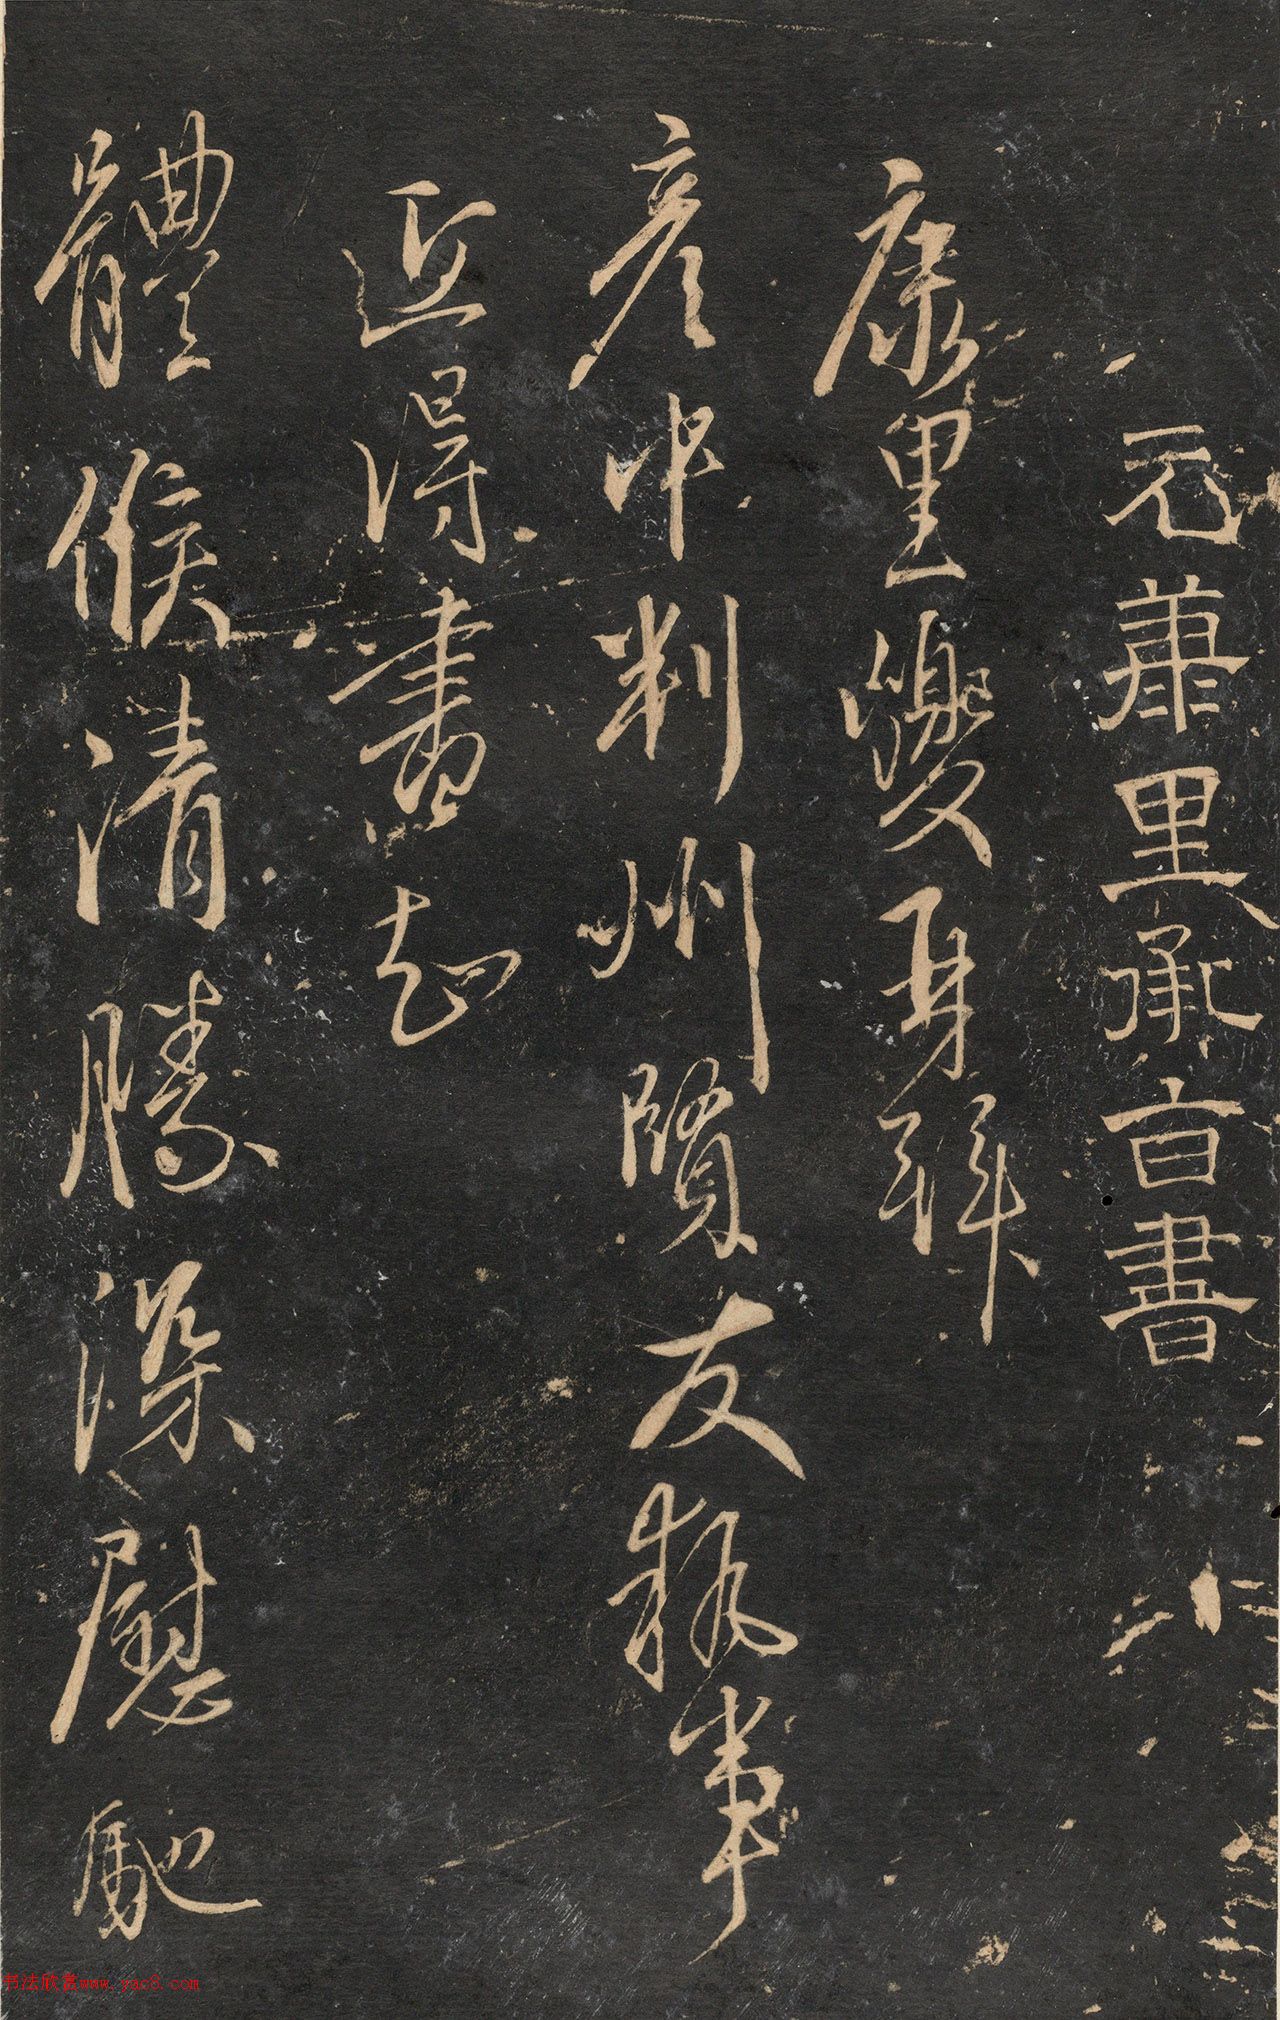 元康里承旨書
康里夔夔再拜
彥中判州賢友執事
近得書知
體候清勝深慰馳
书法欣赏www.yac8.com